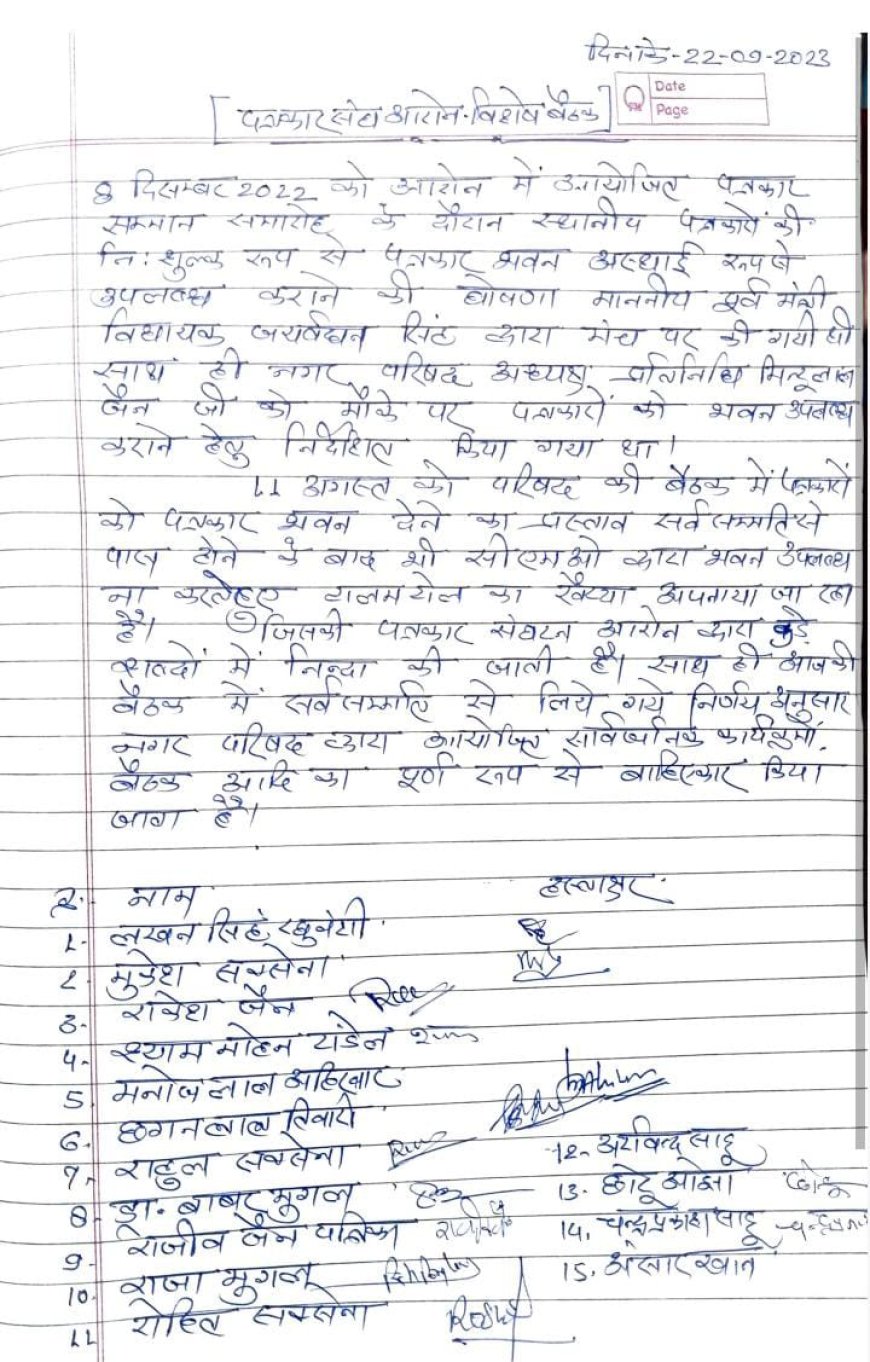 दिनांक-22-09-2023
Date
Page
[पत्रकार संघ आरोन.विशेष बैठक]
8 दिसम्बर 2022 को आरोन में आयोजित पत्रकार
सम्मान समारोह के दौरान स्थानीय पत्रकारों की
नि:शुल्क रूप से पत्रकार भवन अस्थाई रूप से
उपलब्ध कराने की घोषणा माननीय पूर्व मंत्री
विधायक जयवर्धन सिंह द्वारा मंच पर की गयी थी
साथ ही नगर परिषद अध्यक्ष प्रतिनिधि मिट्ठूलाल
जैन जी को मौके पर पत्रकारों को भवन उपलब्ध
कराने हेतु निर्देशित किया गया था।
11 अगस्त को परिषद की बैठक में पत्रकारों
को पत्रकार भवन देने का प्रस्ताव सर्व सम्मति से
पास होने के बाद भी सीएमओ द्वारा भवन उपलब्ध
ना कराते हुए टालमटोल का रवैय्या अपनाया जा रहा
है। जिसकी पत्रकार संघटन आरोन द्वारा कड़े
शब्दों में निन्दा की जाती है। साथ ही आज की
बैठक में सर्व सम्मति से लिये गये निर्णय अनुसार
नगर परिषद द्वारा आयोजित सार्वजनिक कार्यक्रमों,
बैठक आदि का पूर्ण रूप से बाहिष्कार किया
जाता है।
नाम हस्ताक्षर
1. लखन सिंह रघुवंशी
2. मुकेश सक्सेना
3. राकेश जैन
4. श्याम मोहन चंडेल
5. मनोज लाल अहिरवार
6. छगनलाल तिवारी
7. राहुल सक्सेना
8. डा. बाबर मुगल
9. राजीव जैन पत्रिका
10. राजा मुगल
11. रोहित सक्सेना
12. अरविन्द साहू
13. छोटू ओझा छोटू
14. चन्द्रप्रकाश साहू
15. अंसार खान